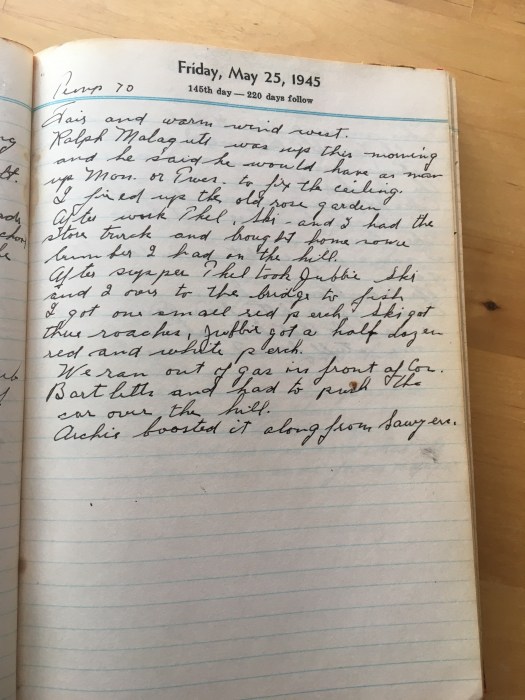 Friday, May 25, 1945
145th day — 220 days follow
Temp 70
Fair and warm wind west.
Ralph Malaguti was up this morning
and he said he would have a man
up Mon. or Tues. to fix the ceiling.
I fixed up the old rose garden
After work Phil, Ski - and I had the
store truck and brought home some
lumber I had on the hill.
After supper Phil took Jubbie Ski
and I over to the bridge to fish
I got one small red perch, Ski got
three roaches, Jubbie got a half dozen
red and white perch.
We ran out of gas in front of Cor.
Bartletts and had to push the
car over the hill.
Archie boosted it along from Sawyers.